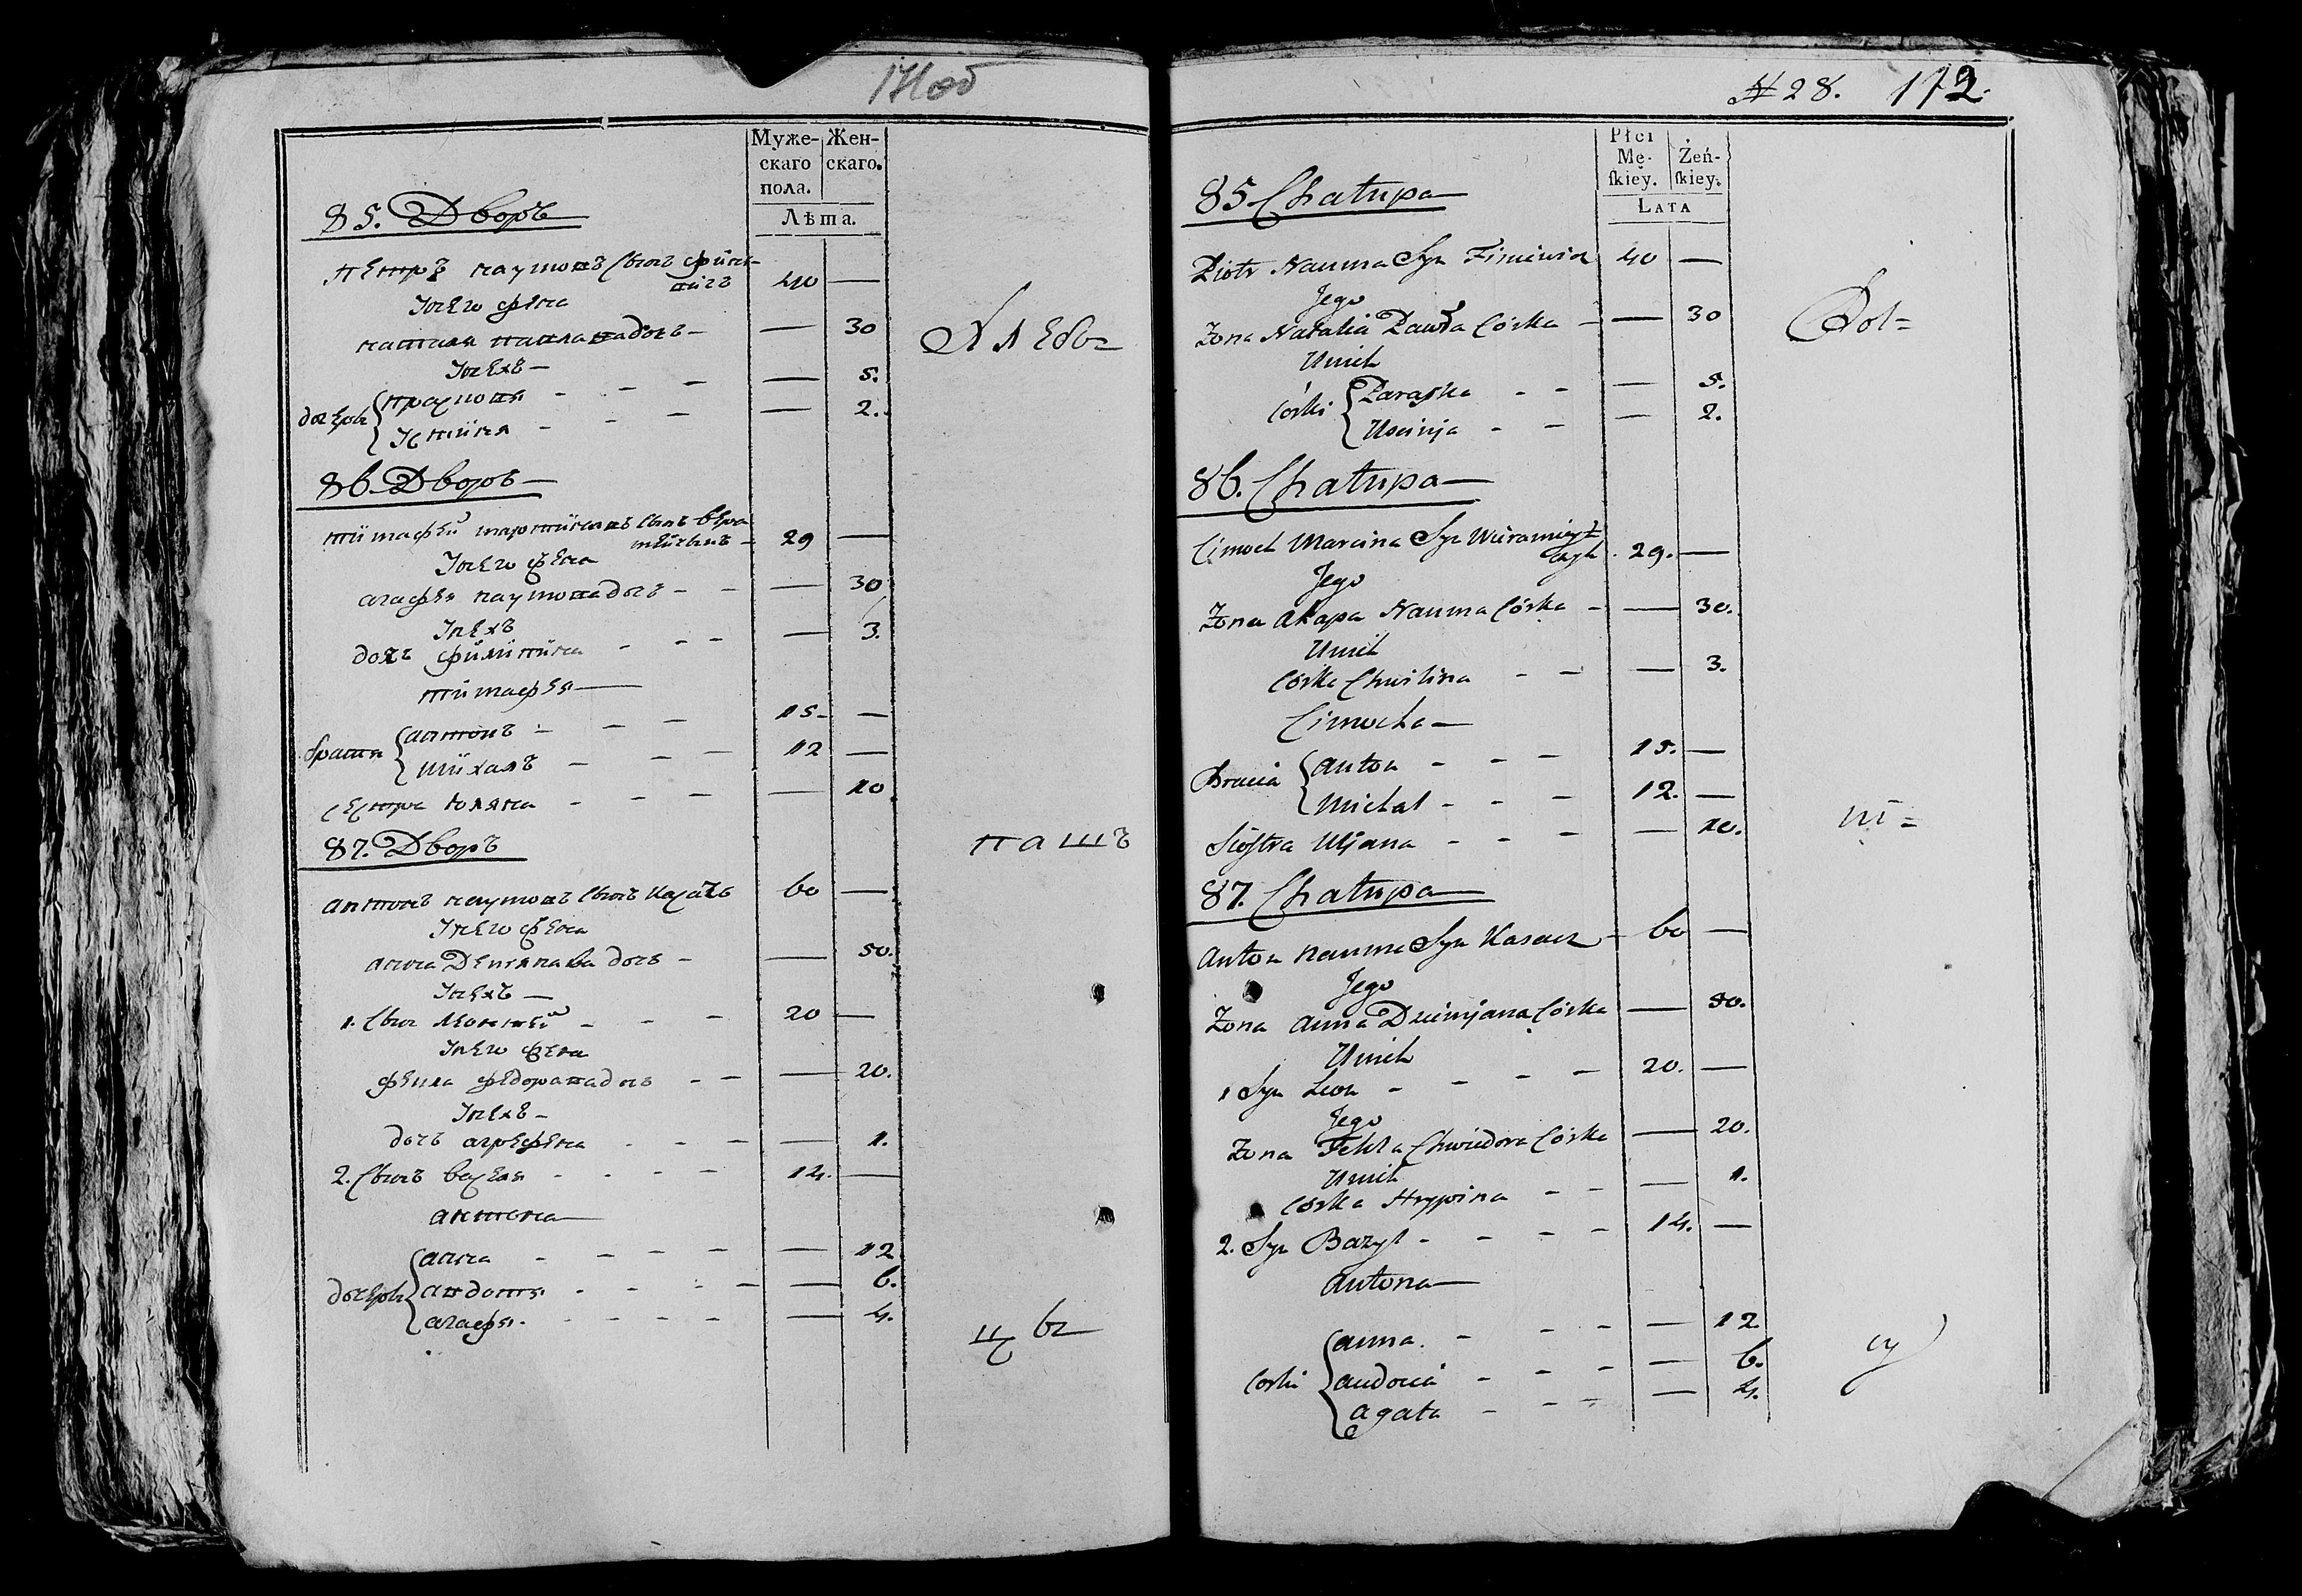 171 об
Муже-
скаго
пола.
Жен-
скаго.
Лѣта.
85. Дворъ
Петръ наумовъ сынъ
40 —
Інего фена
наталя павлавадочь — — 30
Інехъ —
дочерь { прасковя - - — 5.
Устиня - - — 2.
86. Дворъ —
тимафей мартиновъ сынъ
29 —
Інего фена
агафея наумовадочь - - — 30
Інехъ
дочь филитина - - - — 3.
тимафея —
братя { антонъ - - - 15 - —
михалъ - - - 12 —
сестра юляна - - - — 10
87. Дворъ
антонъ наумовъ сынъ казачъ 60 —
Інего фена
анна Демянава дочь - — 50.
Інехъ —
1. сынъ леонтей - - - 20 —
Інего фена
фекла федоравадочь - - — 20.
Інехъ -
дочь агрефена - - - — 1.
2. сынъ васеля - - - - 14. —
антона —
дочерь { анна - - - - — 12
авдотя - - - - — 6.
агафя - - - - — 4.
Алебо
пашъ
№ 28. 172.
Płci
Mę-
ſkiey.
Żeń-
ſkiey.
LATA
85 Chałupa
Piotr Nauma Syn 40 —
Jego
Żona Natalia Pawła Córka - — 30
U nich
Córki { Paraska - - — 5.
Uscinja - - — 2.
86. Chałupa
Cimoch Marcina Syn
29. —
Jego
Żona Ahapa Nauma Córka - — 30.
U nich
Córka Chwilina - - — 3.
Cimocha —
Bracia { Anton - - - 15. —
Michał - - - 12. —
Siostra Uljana - - - — 10.
87. Chałupa
Anton Nauma Syn Kasacz - 60 —
Jego
Żona Anna Dziemjana Córka — 50.
U nich
1 Syn Leon - - - - 20. —
Jego
Żona Tekla Chwiedora Córka — 20.
U nich
Córka Hrypina - - — 1.
2. Syn Bazyl - - - - 14. —
Antona —
Corki { Anna. - - - — 12.
Audocia - - - — 6.
Agata - - - — 4.